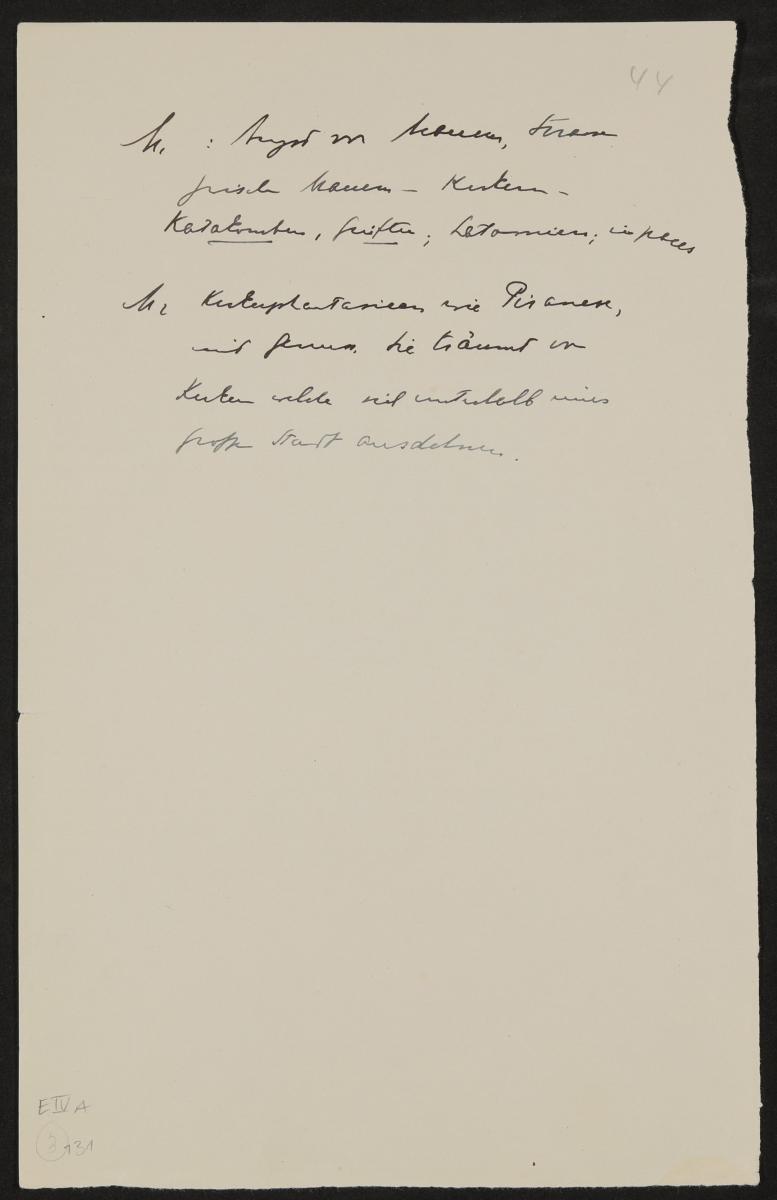 44
M. : Angst vor Mauern,
zwischen Mauern – Kerkern –
Katakomben, Grüften; Latomien; in paces
M2 Kerkerphantasieen wie Piranesi,
mit Genuss. Sie träumt von
Kerkern welche sich unterhalb einer
großen Stadt ausdehnen.
E IV A
3 131